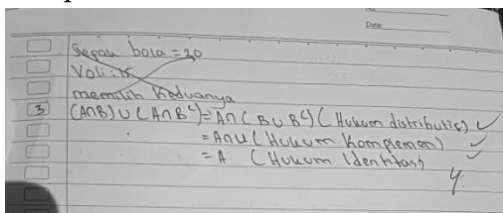 No:
Date:
Sepak bola = 20
Voli: 15
memilih keduanya
3 (A∩B) ∪ (A∩Bᶜ) = A∩(B∪Bᶜ) (Hukum distributif) ✓
= A∩U (Hukum Komplemen) ✓
= A (Hukum Identitas) ✓
4.